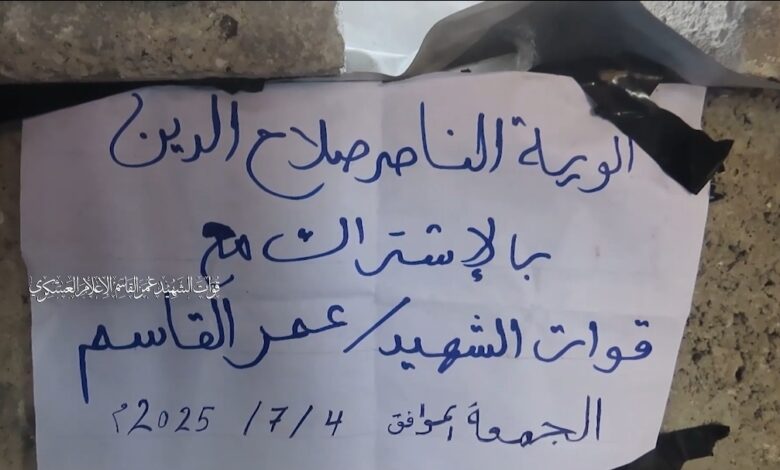 الوية الناصر صلاح الدين
بالإشتراك مع
قوات الشهيد عمر القاسم الإعلام العسكري
قوات الشهيد/عمر القاسم
الجمعة الموافق 4 /7/ 2025م